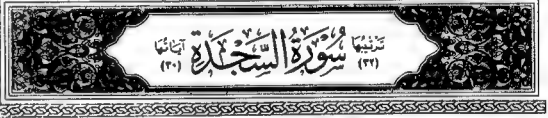 ترتيبها (٣٢) سُورَةُ السَّجْدَةِ آياتها (٣٠)